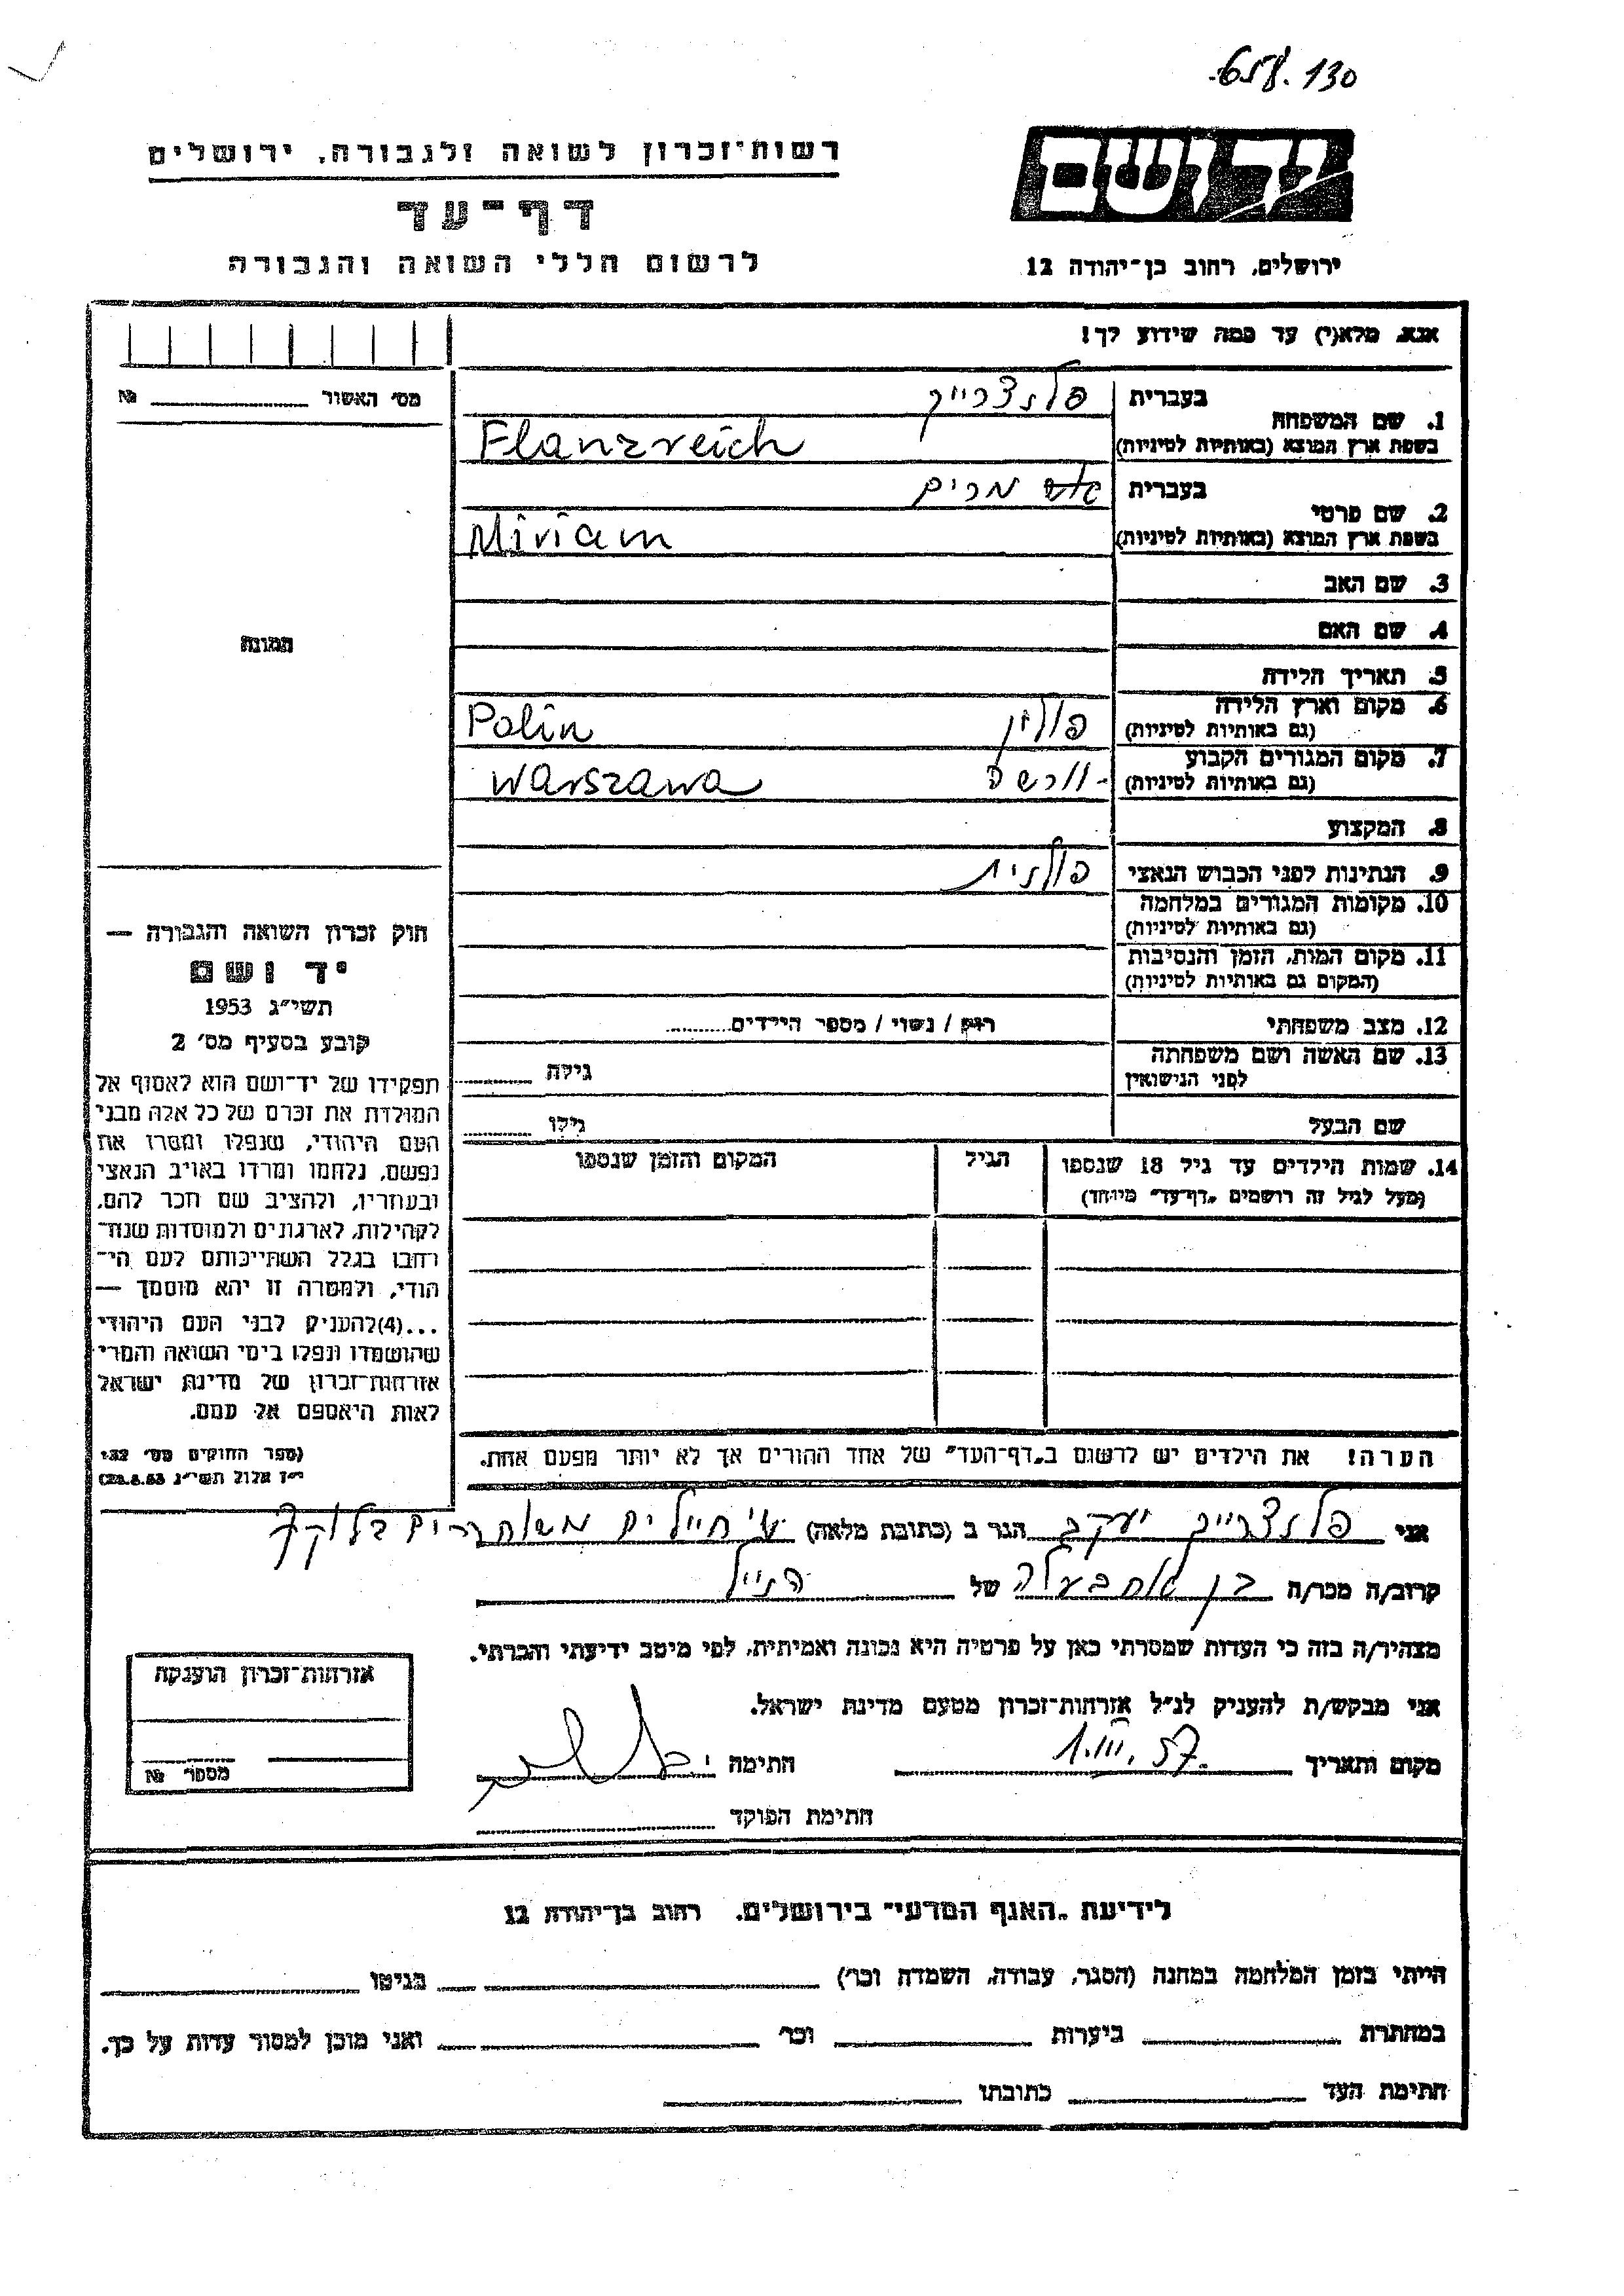 658.130
יד ושם
רשות־זכרון לשואה ולגבורה, ירושלים
דף־עד
לרשום חללי השואה והגבורה
ירושלים, רחוב בן־יהודה 12
אנא, מלא(י) עד כמה שידוע לך!
מס׳ האשור № 
1. שם המשפחה
בעברית פלנצרייך
בשפת ארץ המוצא (באותיות לטיניות) Flanzreich
2. שם פרטי
בעברית מרים
בשפת ארץ המוצא (באותיות לטיניות) Miriam
3. שם האב
4. שם האם
5. תאריך הלידה
6. מקום וארץ הלידה פולין Polin
(גם באותיות לטיניות)
7. מקום המגורים הקבוע וורשה Warszawa
(גם באותיות לטיניות)
8. המקצוע
9. הנתינות לפני הכבוש הנאצי פולנית
10. מקומות המגורים במלחמה
(גם באותיות לטיניות)
11. מקום המות, הזמן והנסיבות
(המקום גם באותיות לטיניות)
12. מצב משפחתי רווק / נשוי / מספר הילדים
13. שם האשה ושם משפחתה גילה
לפני הנישואין
שם הבעל גילו
14. שמות הילדים עד גיל 18 שנספו הגיל המקום והזמן שנספו
(מעל לגיל זה רושמים „דף־עד״ מיוחד)
הערה! את הילדים יש לרשום ב„דף־העד״ של אחד ההורים אך לא יותר מפעם אחת.
תמונה
חוק זכרון השואה והגבורה —
יד ושם
תשי״ג 1953
קובע בסעיף מס׳ 2
תפקידו של יד־ושם הוא לאסוף אל
המולדת את זכרם של כל אלה מבני
העם היהודי, שנפלו ומסרו את
נפשם, נלחמו ומרדו באויב הנאצי
ובעוזריו, ולהציב שם וזכר להם,
לקהילות, לארגונים ולמוסדות שנח־
רבו בגלל השתייכותם לעם הי־
הודי, ולמטרה זו יהא מוסמך —
...(4)להעניק לבני העם היהודי
שהושמדו ונפלו בימי השואה והמרי
אזרחות־זכרון של מדינת ישראל
לאות היאספם אל עמם.
(ספר החוקים מס׳ 132,
י״ז אלול תשי״ג 28.8.53)
אני פלנצרייך יעקב הגר ב (כתובת מלאה) חיילים משוחררים בלוק
קרוב/ה מכר/ה בן אח בעלה של הנ״ל
מצהיר/ה בזה כי העדות שמסרתי כאן על פרטיה היא נכונה ואמיתית, לפי מיטב ידיעתי והכרתי.
אני מבקש/ת להעניק לנ״ל אזרחות־זכרון מטעם מדינת ישראל.
מקום ותאריך 1.III.57. חתימה
חתימת הפוקד
אזרחות־זכרון הוענקה
מספר №
לידיעת „האגף המדעי״ בירושלים, רחוב בן־יהודה 12
הייתי בזמן המלחמה במחנה (הסגר, עבודה, השמדה וכו׳) בגיטו
במחתרת ביערות וכו׳ ואני מוכן למסור עדות על כך.
חתימת העד כתובתו